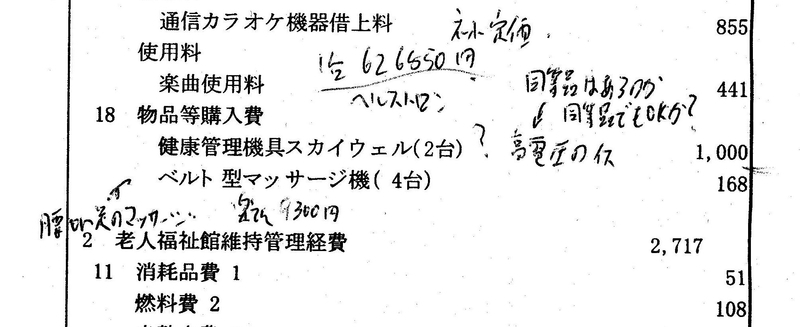 通信カラオケ機器借上料 ネット定価. 855
使用料 1台 626850円
楽曲使用料 ヘルストロン 同等品はあるのか 441
18 物品等購入費 ↓ 同等品でもOKか?
健康管理機具スカイウェル(2台) ? 高電圧の 1,000
ベルト型マッサージ機( 4台) 168
腰 足のマッサージ 9300円
2 老人福祉館維持管理経費 2,717
11 消耗品費 1 51
燃料費 2 108